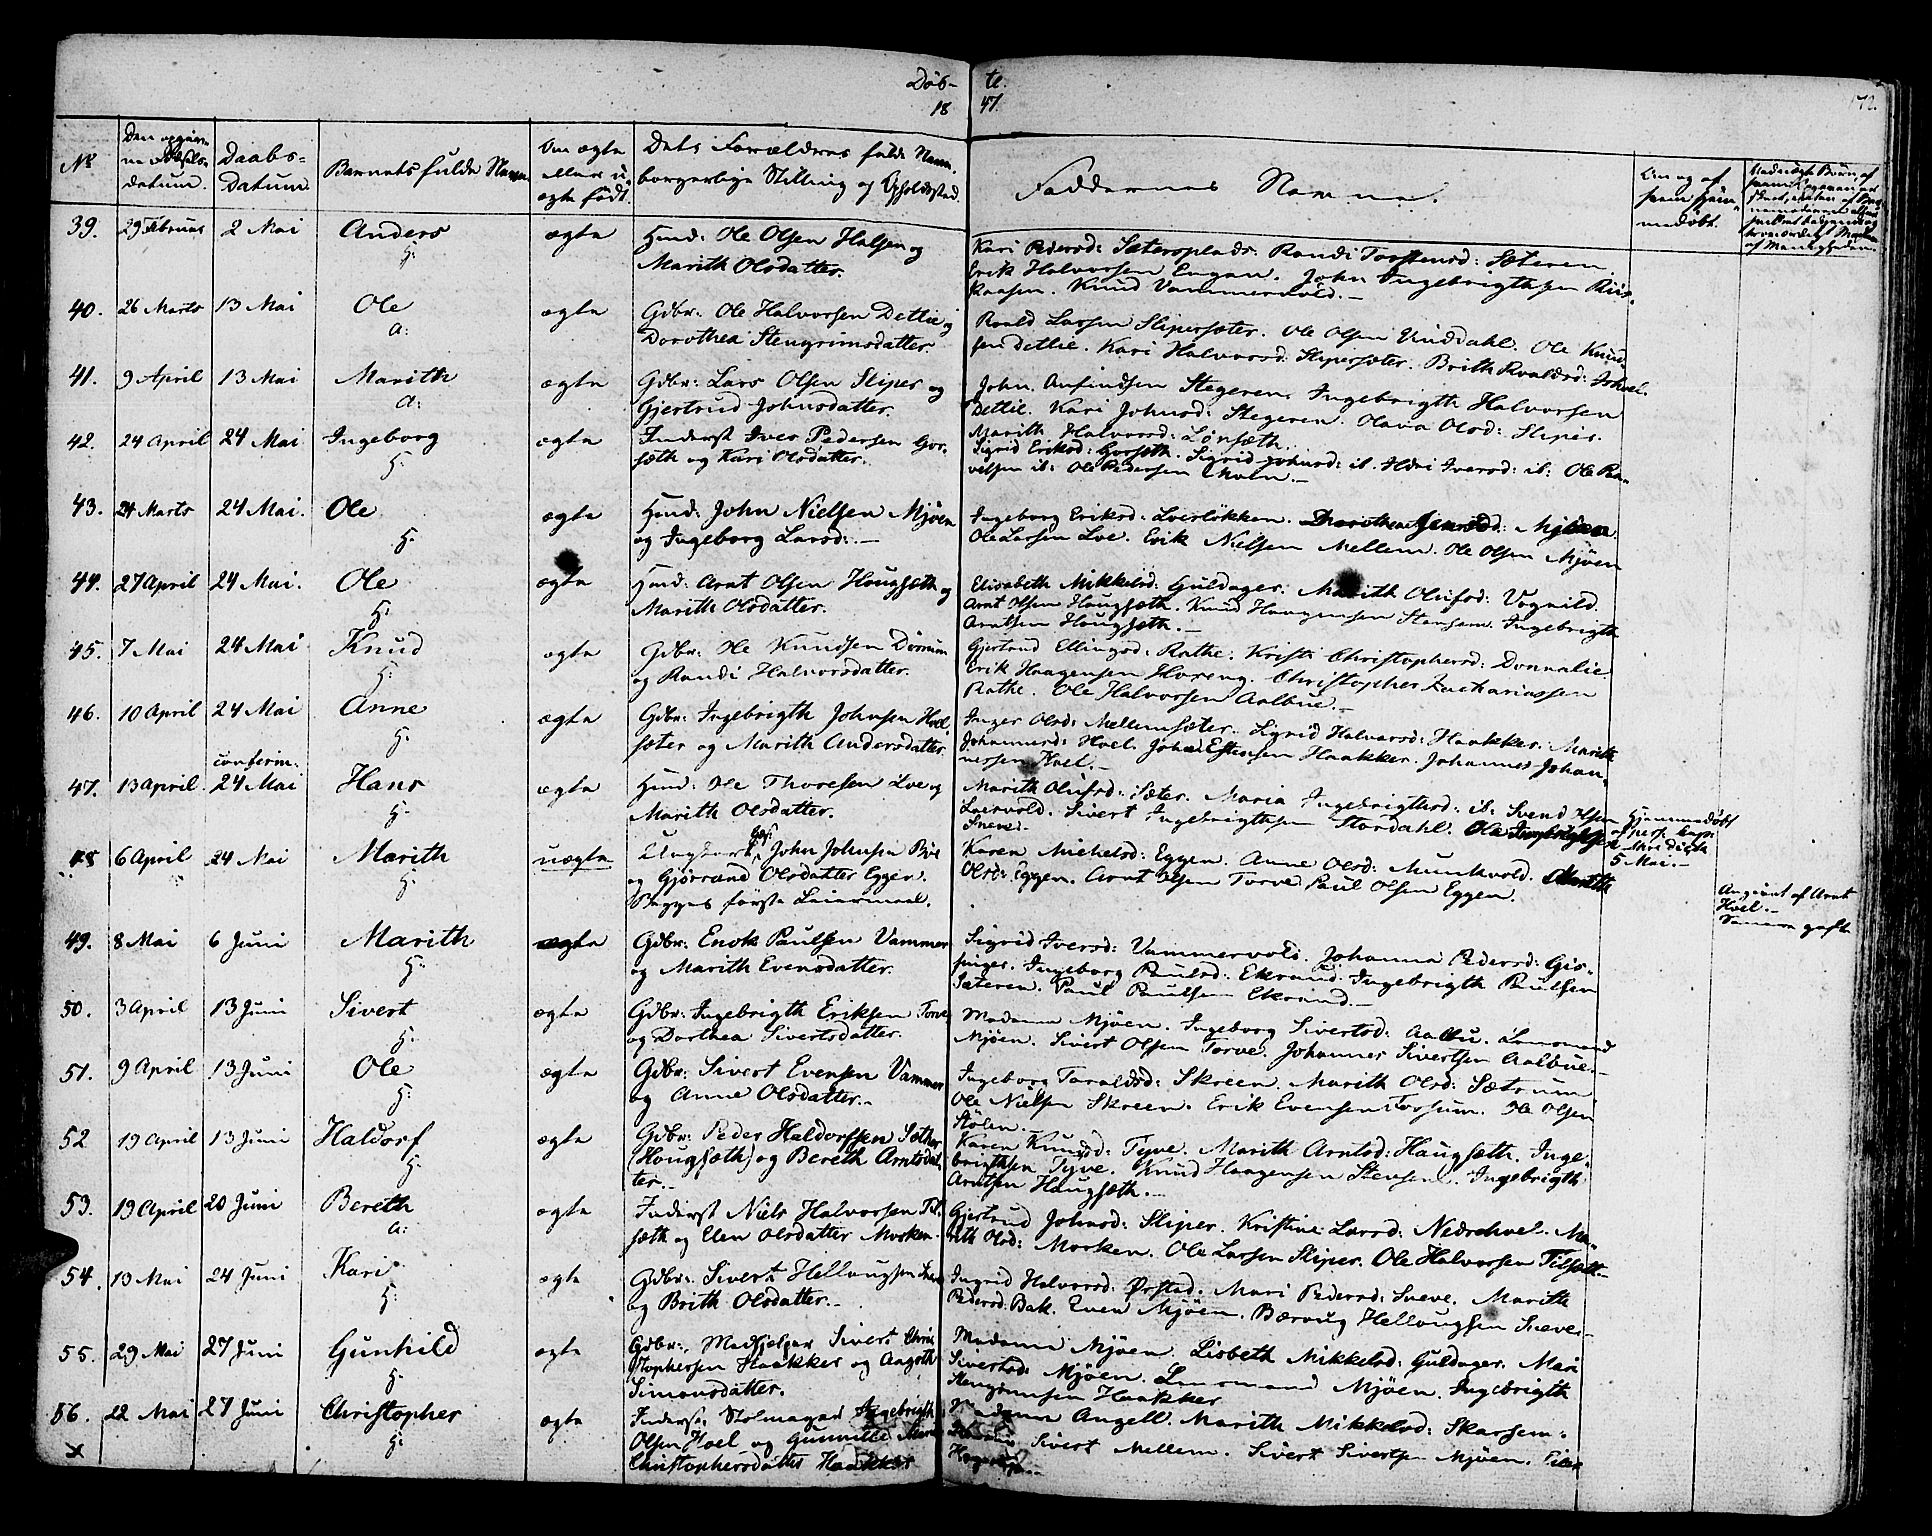 Døb- te.
18 47.
172.
No
Den opgivne Fødsels-datum.
Daabs-Datum.
Barnets fulde Navn
Om ægte eller uægte født.
Dets Forældres fulde Navn, borgerlige Stilling og Opholdssted
Faddernes Navne.
39. 29 Februar 2 Mai Anders ægte Huusmd: Ole Olsen Halsen og
H: Marith Olsdatter.
Kari Pedersd: Sætersplads. Randi Torstensd: Sæteren.
Erik Halvorsen Engan. John Ingebrigthsen Riis-
kaasen. Knud Vammervold.
40. 26 Marts 13 Mai Ole ægte Gdbr: Ole Halvorsen Detlie og
a: Dorothea Stengrimsdatter.
Roald Larsen Slipersæter. Ole Olsen Vinddahl. Ole Knud-
sen Detlie. Kari Halvorsd: Slipersæter. Brith Roaldsd:
41. 9 April 13 Mai Marith ægte Gdbr: Lars Olsen Sliper og
a: Gjertrud Johnsdatter.
John Anfindsen Stegeren. Ingebrigth Halvorsen
Detlie. Kari Johnsd: Stegeren. Olava Olsd: Sliper.
Marith Halvorsd: Lønsæth.
42. 24 April 24 Mai Ingeborg ægte Inderst Iver Pedersen Gor-
H: sæth og Kari Olsdatter.
Sigrid Eriksd: Gorsæth. Sigrid Johnsd: ib. Iversd: ib: Ole Ra-
velsen ib: Ole Pedersen
43. 24 Marts 24 Mai. Ole ægte Hmd: John Nielsen Mjøen
H: og Ingeborg Larsd:
Ingeborg Eriksd: Loesløkken. Dorothea Jensd: Mjøen
Ole Larsen Loe. Erik Nielsen Mellem. Ole Olsen Mjøen
44. 27 April 24 Mai. Ole ægte Hmd: Arnt Olsen Hougsæth og
H: Marith Olsdatter.
Elisabeth Mikkelsd: Guldager. Marith Olufsd: Vognild.
Arnt Olsen Hougsæth. Knud Haagensen Stensem. Ingebrigth
Arntsen Hougsæth.
45. 7 Mai 24 Mai Knud ægte Gdbr: Ole Knudsen Dørum
H: og Randi Halvorsdatter.
Gjertrud Ellingsd: Rathe. Kristi Christophersd: Donnalie
Erik Haagensen Horeng. Christopher Zachariassen
Rathe. Ole Halvorsen Aalbue.
46. 10 April 24 Mai Anne ægte Gdbr: Ingebrigth Johnsen Hoel-
H: sæter og Marith Andersdatter.
Inger Olsd: Mellemsæter. Sigrid Halvorsd: Haakker. Marith
Johannesd: Hoel. John Estensen Haakker. Johannes Johan-
nessen Hoel.
47. 13 April conferm: 24 Mai Hans ægte Hmd: Ole Thoresen Loe og
H: Marith Olsdatter.
Marith Olufsd: Sæter. Maria Ingebrigtsd: ib. Svend
Loervold. Sivert Ingebrigthsen Stordahl. Ole Ingebrigtsen
Sneve.
Hjemmedøbt af 5 Mai.
48 6 April 24 Mai Marith uægte Ungkarl John Johnsen Böe
H: og Gjørrand Olsdatter Eggen.
Begges første Leiermaal.
Karen Michelsd: Eggen. Anne Olsd: Munkvold. Marith
Olsd: Eggen. Arnt Olsen Torve. Paul Olsen Eggen.
Angivet af Arnt
Hoel.
49. 8 Mai 6 Juni Marith ægte Gdbr: Enok Paulsen Vammer
H: og Marith Evensdatter.
Sigrid Iversd: Vammervold. Johanna Pedersd: Gis-
singer. Ingeborg Paulsd: Ekrand. Ingebrigth Paulsen
Sæteren. Paul Paulsen Ekrand.
50. 3 April 13 Juni Sivert ægte Gdbr: Ingebrigth Eriksen Torve
H: og Dorthea Sivertsdatter.
Madame Mjøen. Ingeborg Sivertsd: Aalbu. Lensmand
Mjøen. Sivert Olsen Torve. Johannes Sivertsen Aalbue.
51. 9 April 13 Juni Ole ægte Gdbr: Sivert Evensen Vammer
H: og Anne Olsdatter.
Ingeborg Taraldsd: Skreen. Marith Olsd: Sætrum
Ole Nielsen Skreen. Erik Evensen Torsum. Ole Olsen
Stølen.
52 19 April 13 Juni Haldorf ægte Gdbr: Peder Haldorssen Sæther
H: (Hougsæth) og Bereth Arntsdat-
ter.
Karen Knudsd: Tyve. Marith Arntsd: Haugsæth. Inge-
brigthsen Tyve. Knud Haagensen Stensem. Ingebrigth
Arntsen Haugsæth.
53. 19 April 20 Juni Bereth ægte Inderst Niels Halvorsen Til-
a: sæth og Elen Olsdatter Morken.
Gjertrud Johnsd: Sliper. Kristine Larsd: Nedrehoel. Ma-
rith Olsd: Morken. Ole Larsen Sliper. Ole Halvorsen Tilsæth
54. 13 Mai 24 Juni Kari ægte Gdbr: Sivert Hellaugsen Sneve
H: og Brith Olsdatter.
Ingrid Halvorsd: Ørstad. Mari Pedersd: Sneve. Marith
Pedersd: Bak. Even Mjøen. Bæraug Hellaugsen Sneve.
55. 29 Mai 27 Juni Gunhild ægte Gdbr: Medhjelper Sivert Chris-
H: tophersen Haakker og Aagoth
Simonsdatter.
Madame Mjøen. Lisbeth Mikkelsd: Guldager. Mari
Sivertsd: Mjøen. Lensmand Mjøen. Ingebrigth
Stengrimsen Haakker
56. 22 Mai 27 Juni Christopher ægte Inderst: Ingebrigth
H: Olsen Hoel og Gunnild
Christophersdatter Haakker
Madame Angell. Marith Mikkelsd: Skarsem.
Sivert Mellem. Sivert Sivertsen Mjøen.